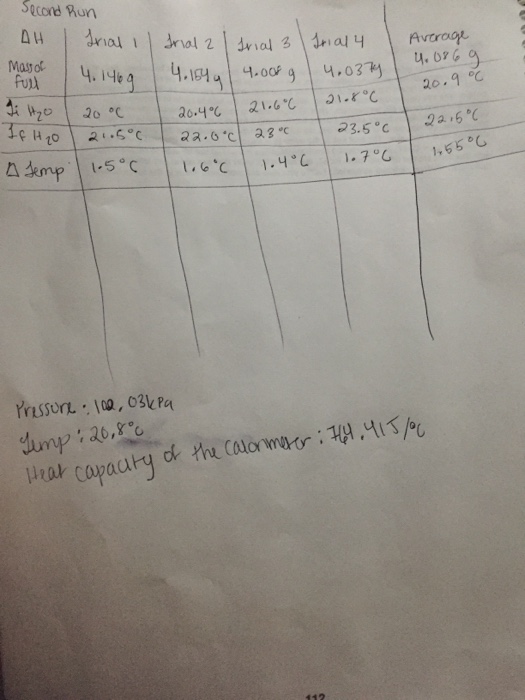 Second Run
ΔH Trial 1 Trial 2 Trial 3 Trial 4 Average
Mass of Full 4.146g 4.184g 4.008g 4.037g 4.086g
Ti H2O 20 °C 20.4°C 21.6°C 21.8°C 20.9 °C
Tf H2O 21.5°C 22.0°C 23°C 23.5°C 22.5°C
Δ Temp 1.5°C 1.6°C 1.4°C 1.7°C 1.55°C
Pressure: 102.03kPa
Temp: 20.8°C
Heat capacity of the calorimeter: 764.41J/°C
112